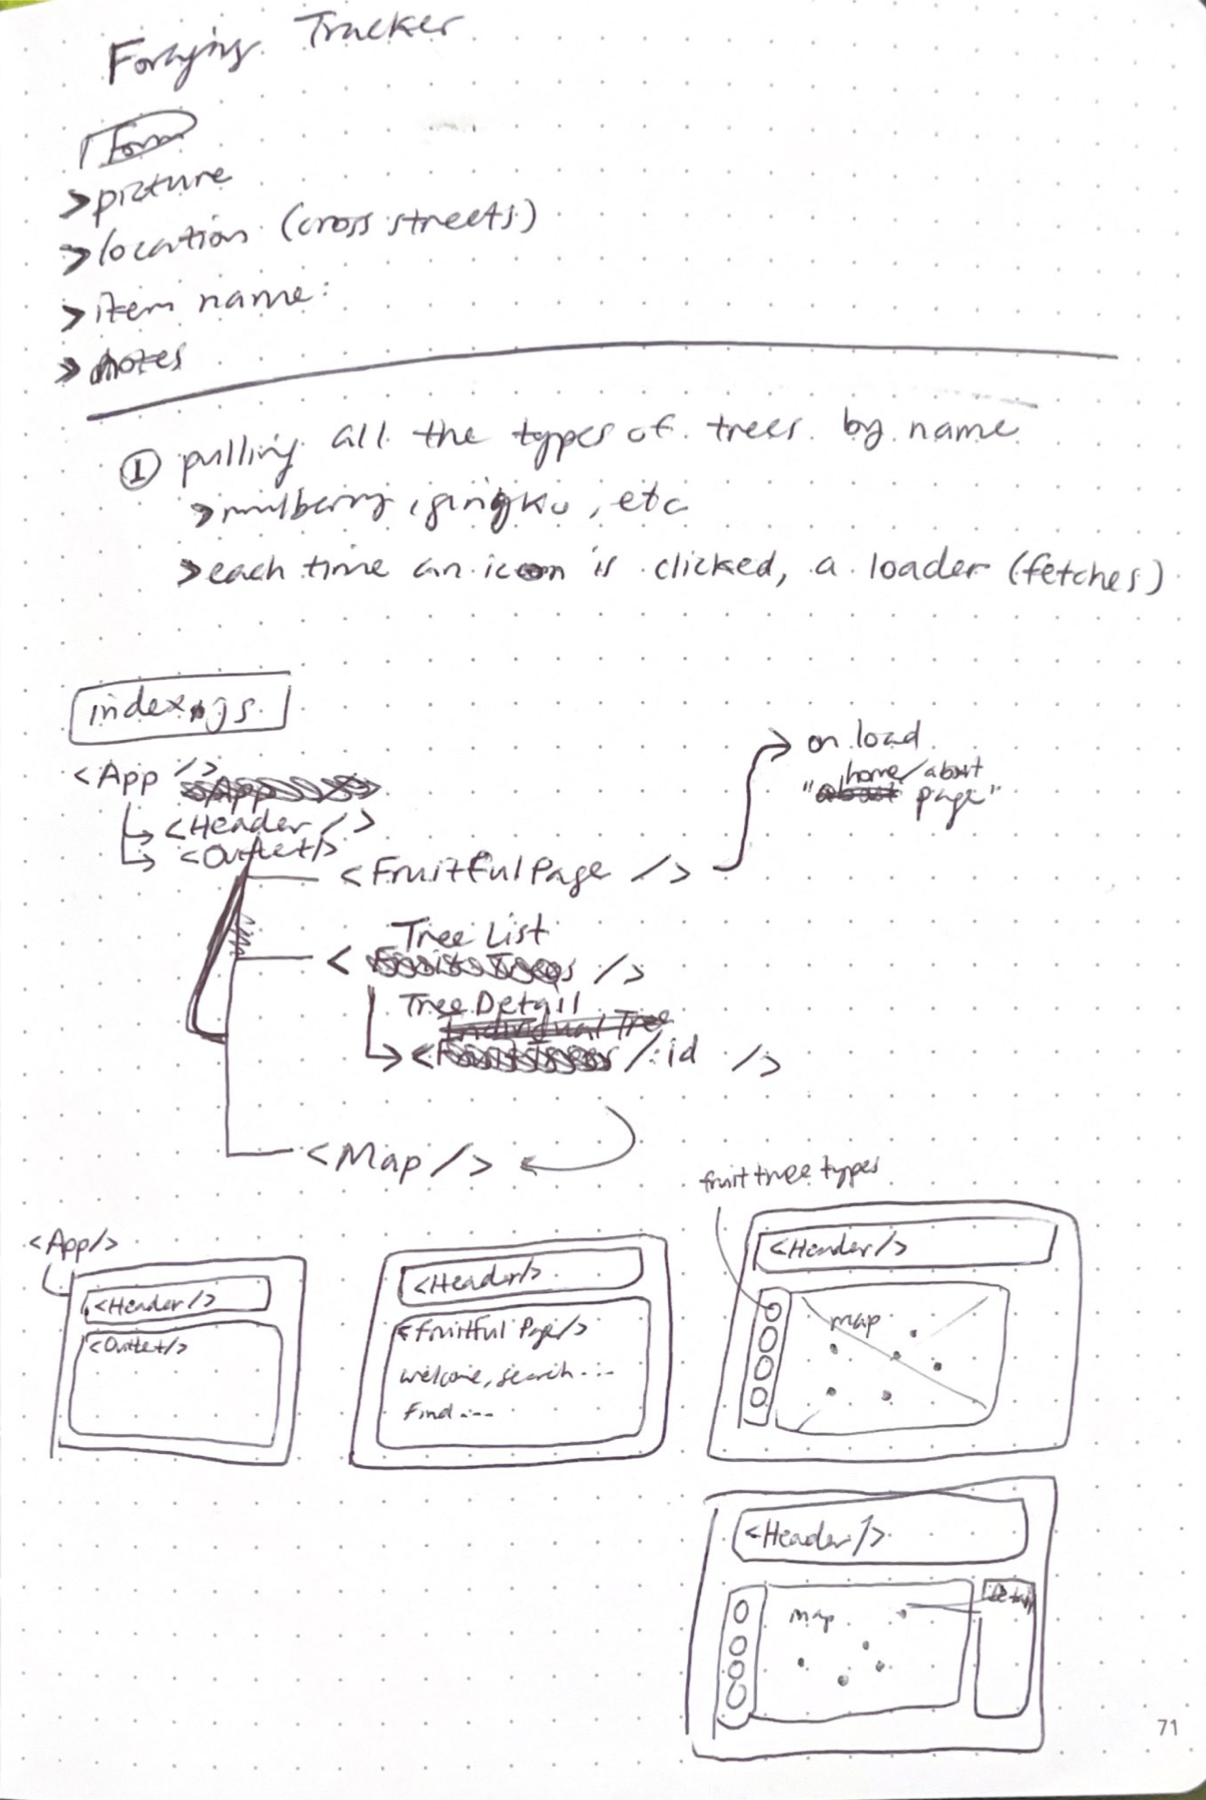 Foraging Tracker
Form
>picture
>location (cross streets)
>item name:
>notes
① pulling all the types of trees by name
>mulberry, gingko, etc
>each time an icon is clicked, a loader (fetches)
index.js
<App />
<Header />
<Outlet/>
<FruitfulPage />
on load
home/about
"about page"
Tree List
< />
Tree Detail
Individual Tree
< /:id />
<Map/>
fruit tree types
<App/>
<Header/>
<Outlet/>
<Header/>
<Fruitful Page/>
welcome, search...
find...
<Header/>
map
<Header/>
map
detail
71